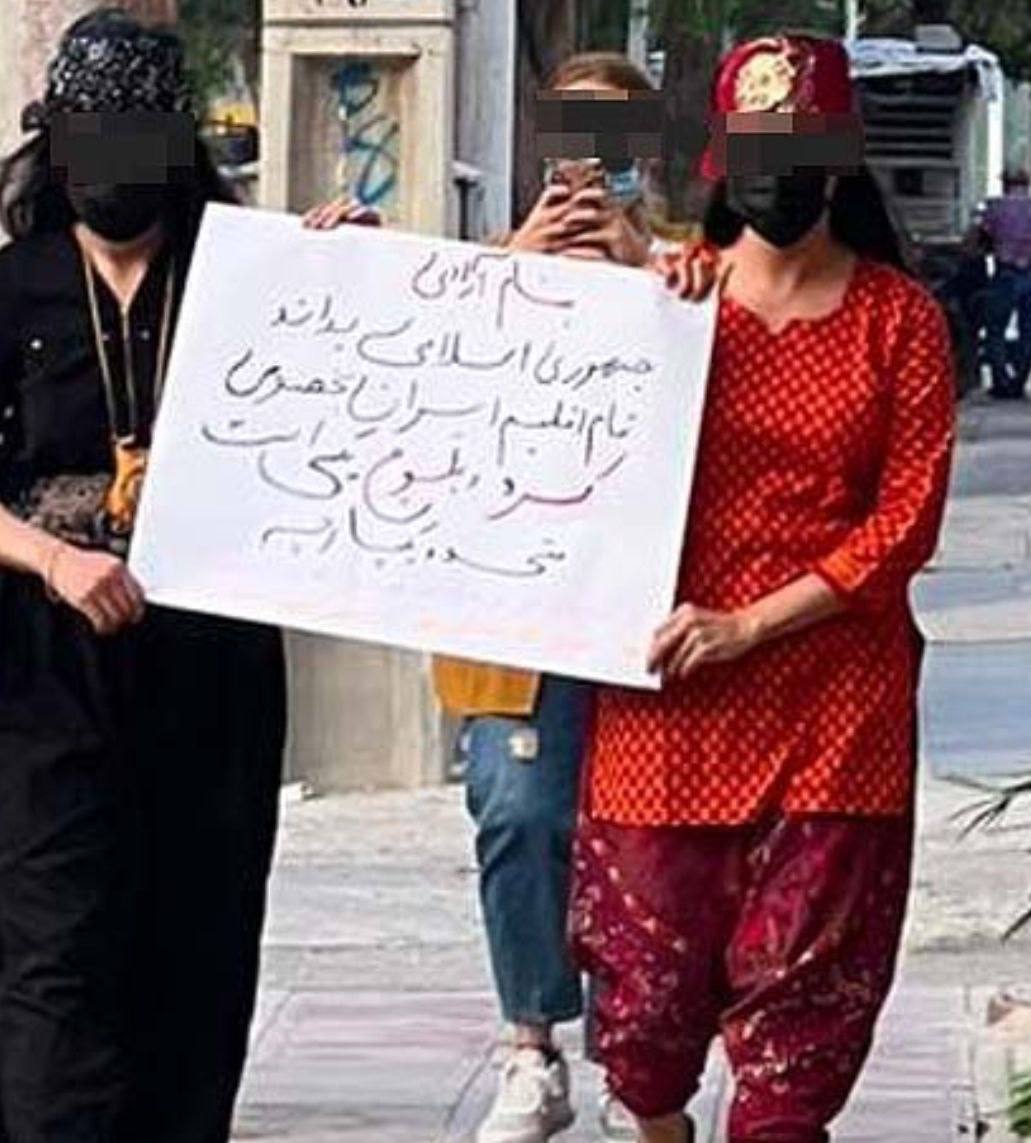 بنام آزادی
جمهوری اسلامی بداند
تمام اقلیم ایران بخصوص
کرد و بلوچ یکی است
متحد و یکپارچه